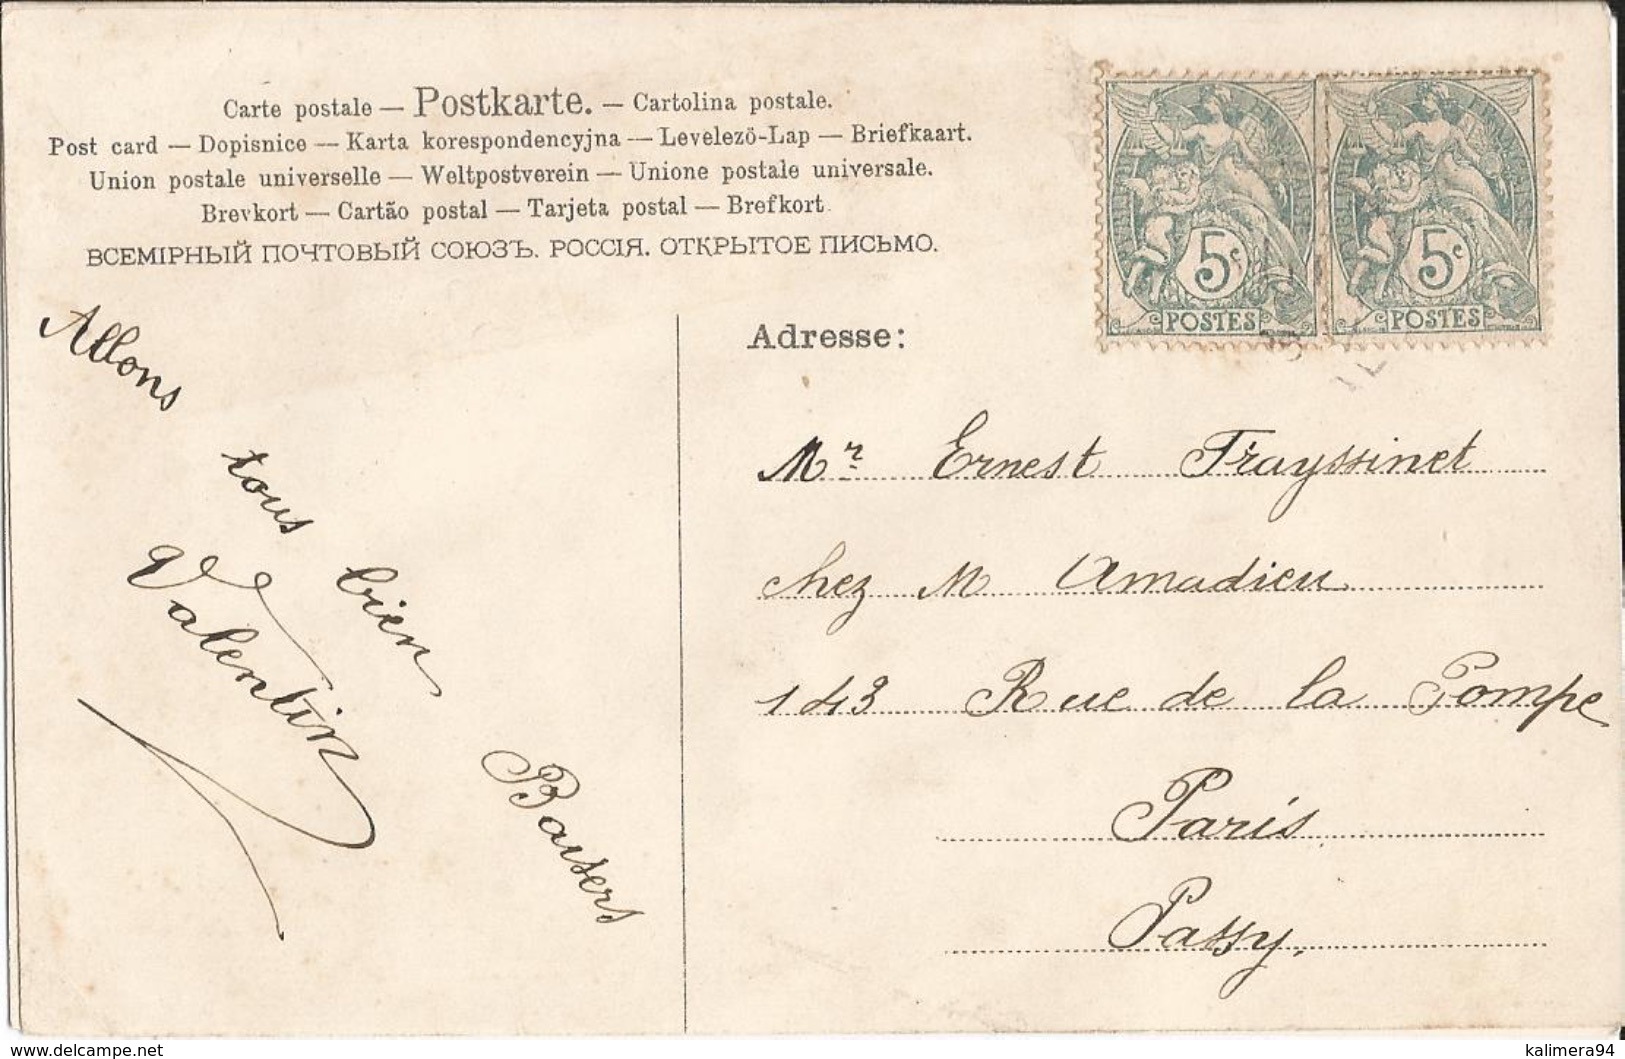 Carte postale — Postkarte. — Cartolina postale.
Post card — Dopisnice — Karta korespondencyjna — Levelezö-Lap — Briefkaart.
Union postale universelle — Weltpostverein — Unione postale universale.
Brevkort — Cartão postal — Tarjeta postal — Brefkort.
ВСЕМІРНЫЙ ПОЧТОВЫЙ СОЮЗЪ. РОССІЯ. ОТКРЫТОЕ ПИСЬМО.
5c
POSTES
5c
POSTES
Allons
tous bien
Baisers
Valentin
Adresse:
Mr Ernest Frayssinet
chez M Amadieu
143 Rue de la Pompe
Paris
Passy.
www.delcampe.net
kalimera94